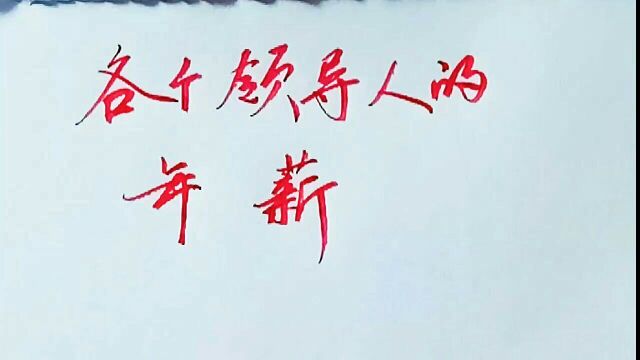 各个领导人的
年薪